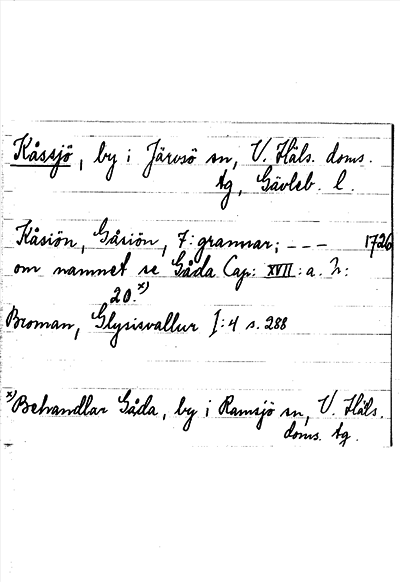 Kåssjö, by i Järvsö sn, V. Häls. doms.
tg, Gävleb. l.
Kåsiön, Gåsiön, 7: grannar; --- 1726
om namnet se Gåda Cap: XVII: a. N:
20.x)
Broman, Glysisvallur I:4 s. 288
x) Behandlar Gåda, by i Ramsjö sn, V. Häls.
doms. tg.